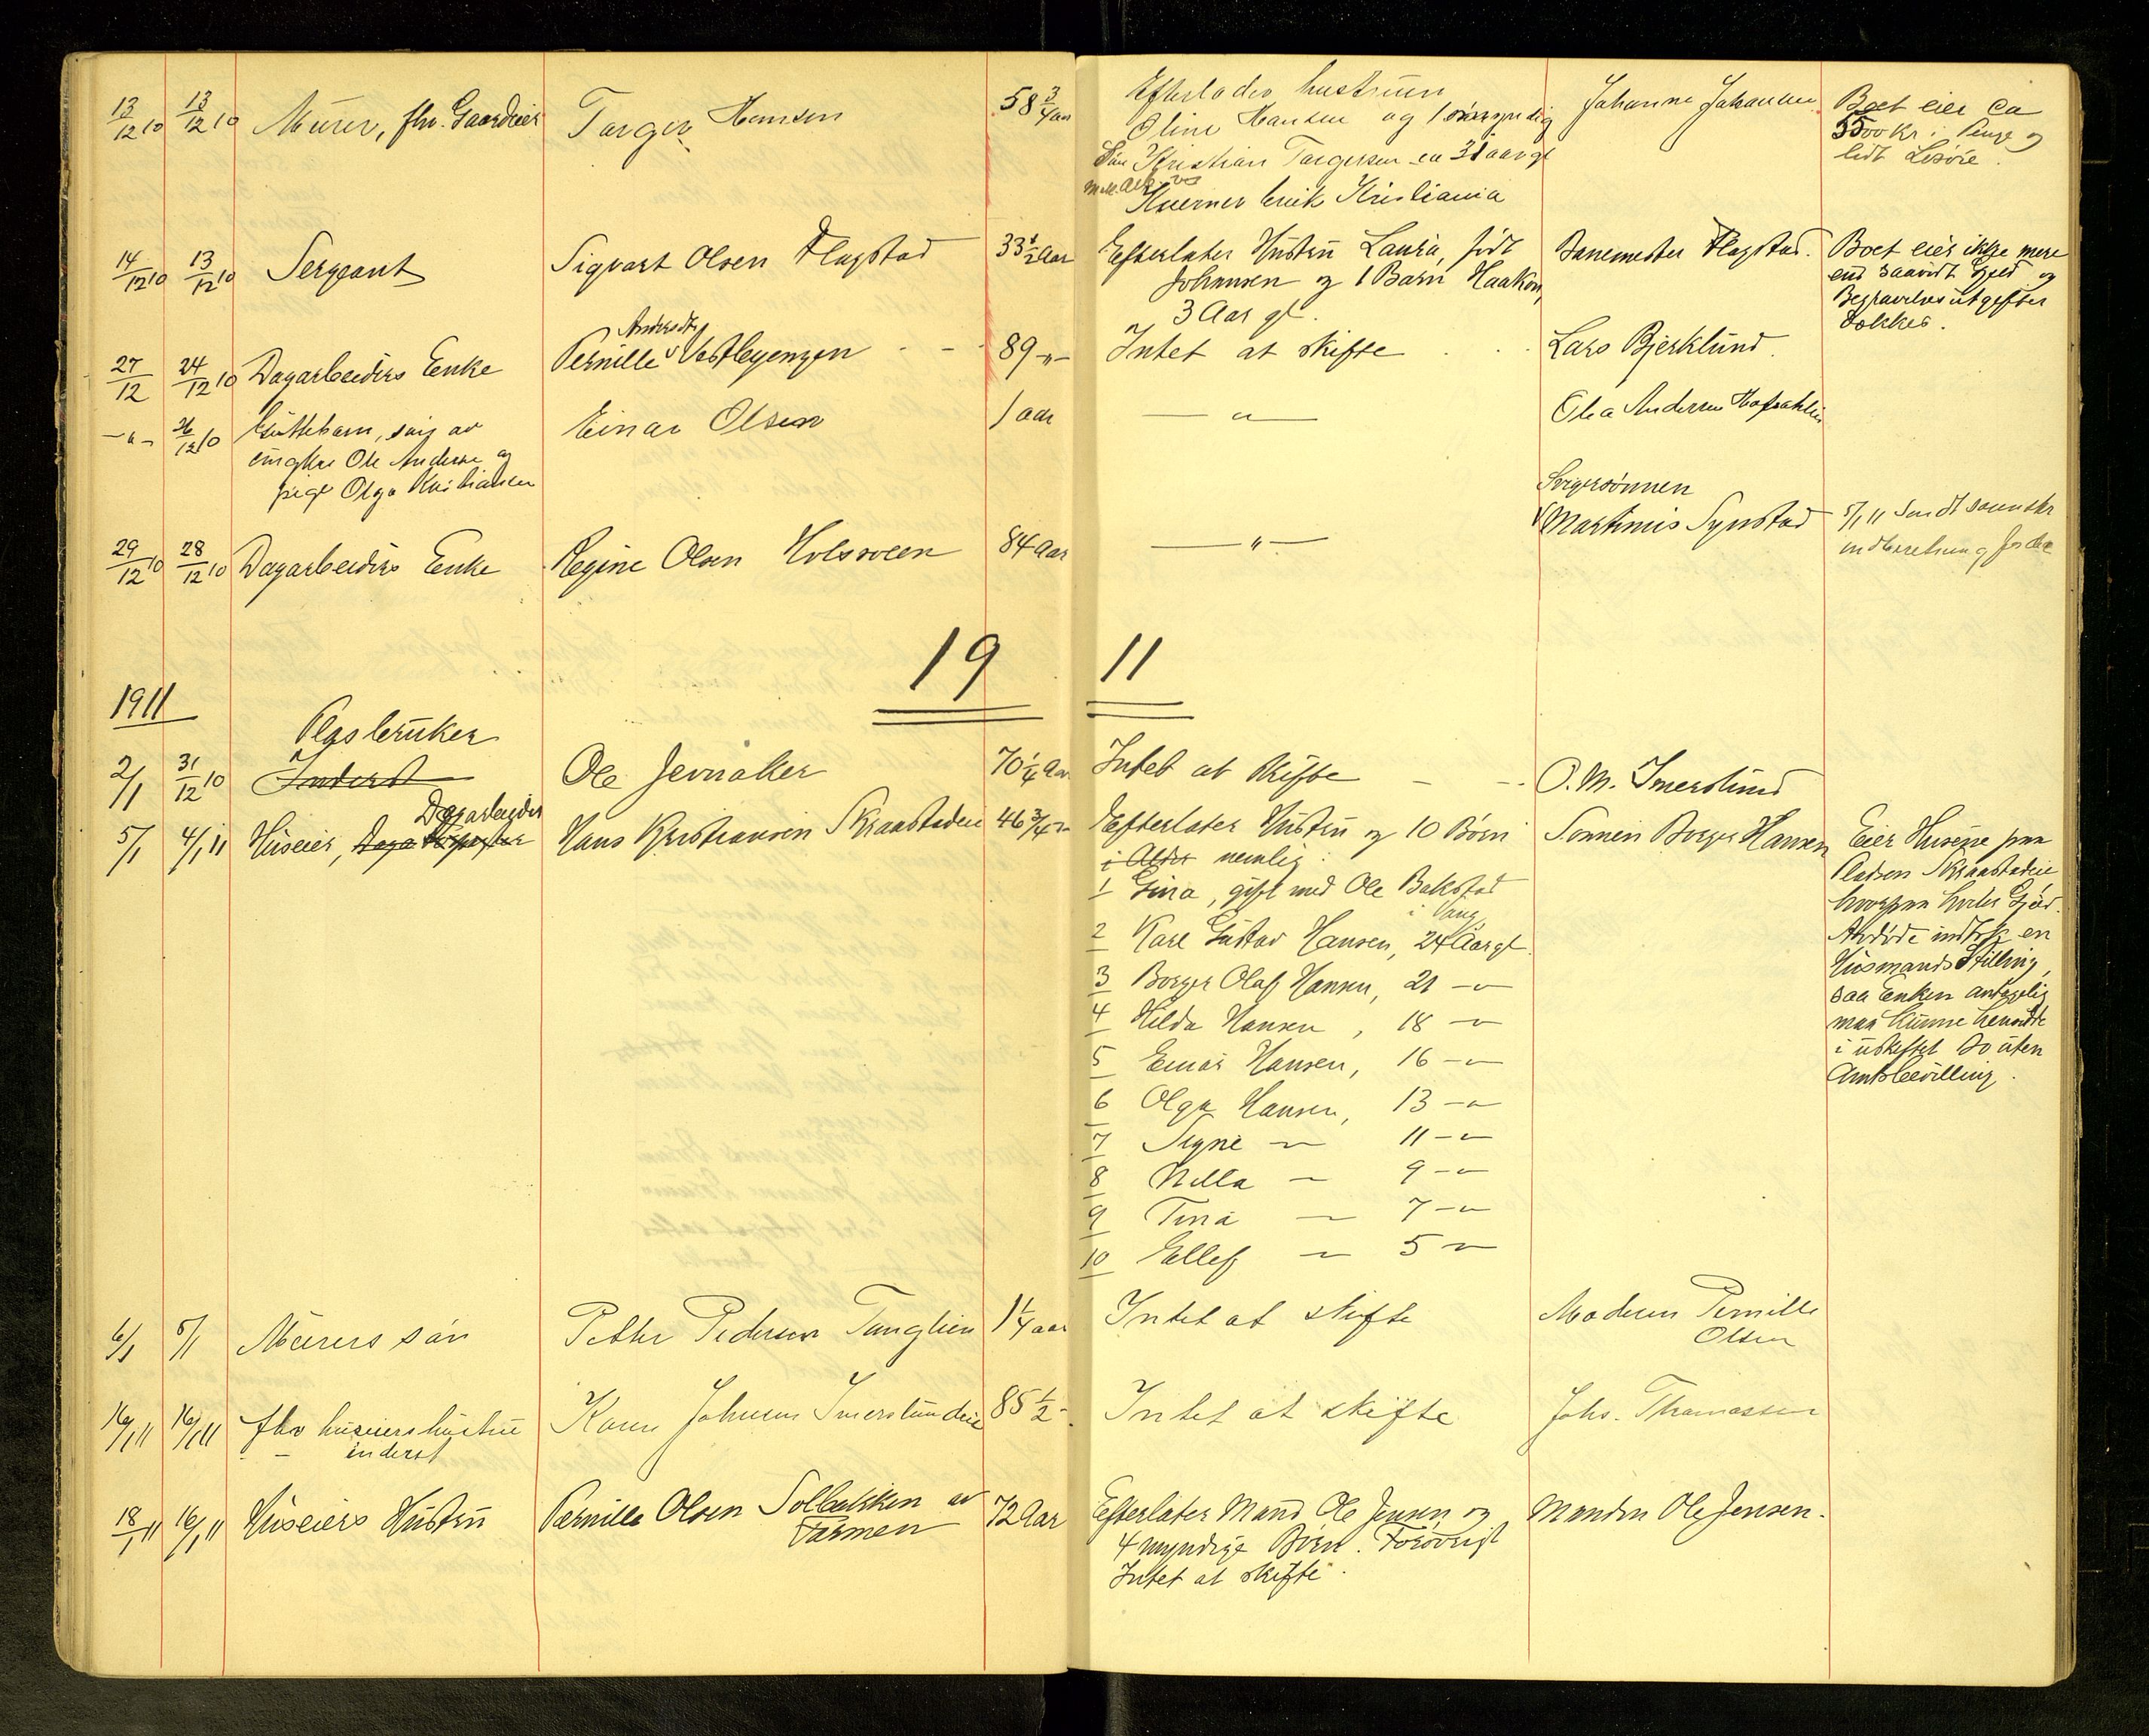 13/12 10 13/12 10 Murer, fhv. Gaardeier Torger Hansen 58 3/4 aar Efterlader hustruen Johanne Johansen Boet eier ca
Oline Hansen og 1 myndig 5500 kr i Penge og
Søn Kristian Torgersen ca 31 aar gl lidt Løsøre.
Kværner bruk Kristiania
14/12 10 13/12 10 Sergeant Sigvart Olsen Flagstad 33 1/2 Aar Efterlater Hustru Laura, født Banemester Flagstad. Boet eier ikke mere
Johansen og 1 Barn Haakon, end saavidt Gjeld og
3 Aar gl. Begravelsesutgifter
dækkes.
Andersdtr
27/12 24/12 10 Dagarbeiders Enke Pernille Vestbyengen 89 -"- Intet at skifte Lars Bjerklund.
-"- 26/12 10 Guttebarn, søn av Einar Olsen 1 aar -"- Ola Andersen
ungkar Ole Anderse og
pige Olga Kristiansen
Svigersønnen
29/12 10 28/12 10 Dagarbeiders Enke Regine Olsen Holsveen 84 Aar -"- Martinus Synstad 5/1 11 Sendt
19 11
1911
Plasbruker
2/1 31/12 10 Inderst Ole Jevnaker 70 1/4 Aar Intet at skifte O. M. Imerslund
Dagarbeider
5/1 4/1 11 Huseier, Hans Kristiansen Skraastadeie 46 3/4 -"- Efterlater Hustru og 10 Børn Sønnen Borger Hansen Eier Husene paa
i Alder nemlig: Pladsen Skraastadeie
1 Gina, gift med Ole Bakstad hvorpaa hviler Gjæld.
i Vang
2 Karl Gustav Hansen, 24 Aar gl. Avdøde indtok en
3 Borger Olaf Hansen, 21 -"- Husmands Stilling,
4 Hilda Hansen, 18 -"- saa Enken antagelig
maa kunne hensidde
5 Einar Hansen, 16 -"- i uskiftet Bo uten
Amtsbevilling.
6 Olga Hansen, 13 -"-
7 Signe -"- 11 -"-
8 Nilla -"- 9 -"-
9 Tina -"- 7 -"-
10 Ellef -"- 5 -"-
6/1 5/1 Murers søn Petter Pedersen Tanglien 1 1/4 aar Intet at skifte Moderen Pernille
Olsen
16/1 11 16/1 11 fhv huseiershustru Karen Johnsen Imerslundeie 85 1/2 - Intet at skifte Johs. Thomassen
- - inderst
18/1 11 16/1 11 Huseiers Hustru Pernille Olsen Solbakken av 72 Aar Efterlater Mand Ole Jensen og Manden Ole Jensen.
Farmen 4 myndige Børn. Forøvrigt
Intet at skifte.